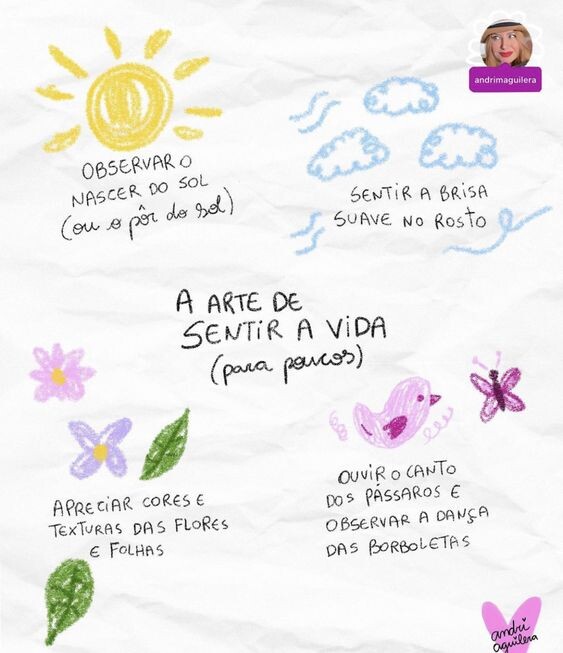 andrimaguilera
OBSERVAR O
NASCER DO SOL
(ou o pôr do sol)
SENTIR A BRISA
SUAVE NO ROSTO
A ARTE DE
SENTIR A VIDA
(para poucos)
APRECIAR CORES E
TEXTURAS DAS FLORES
E FOLHAS
OUVIR O CANTO
DOS PÁSSAROS E
OBSERVAR A DANÇA
DAS BORBOLETAS
andri
aguilera